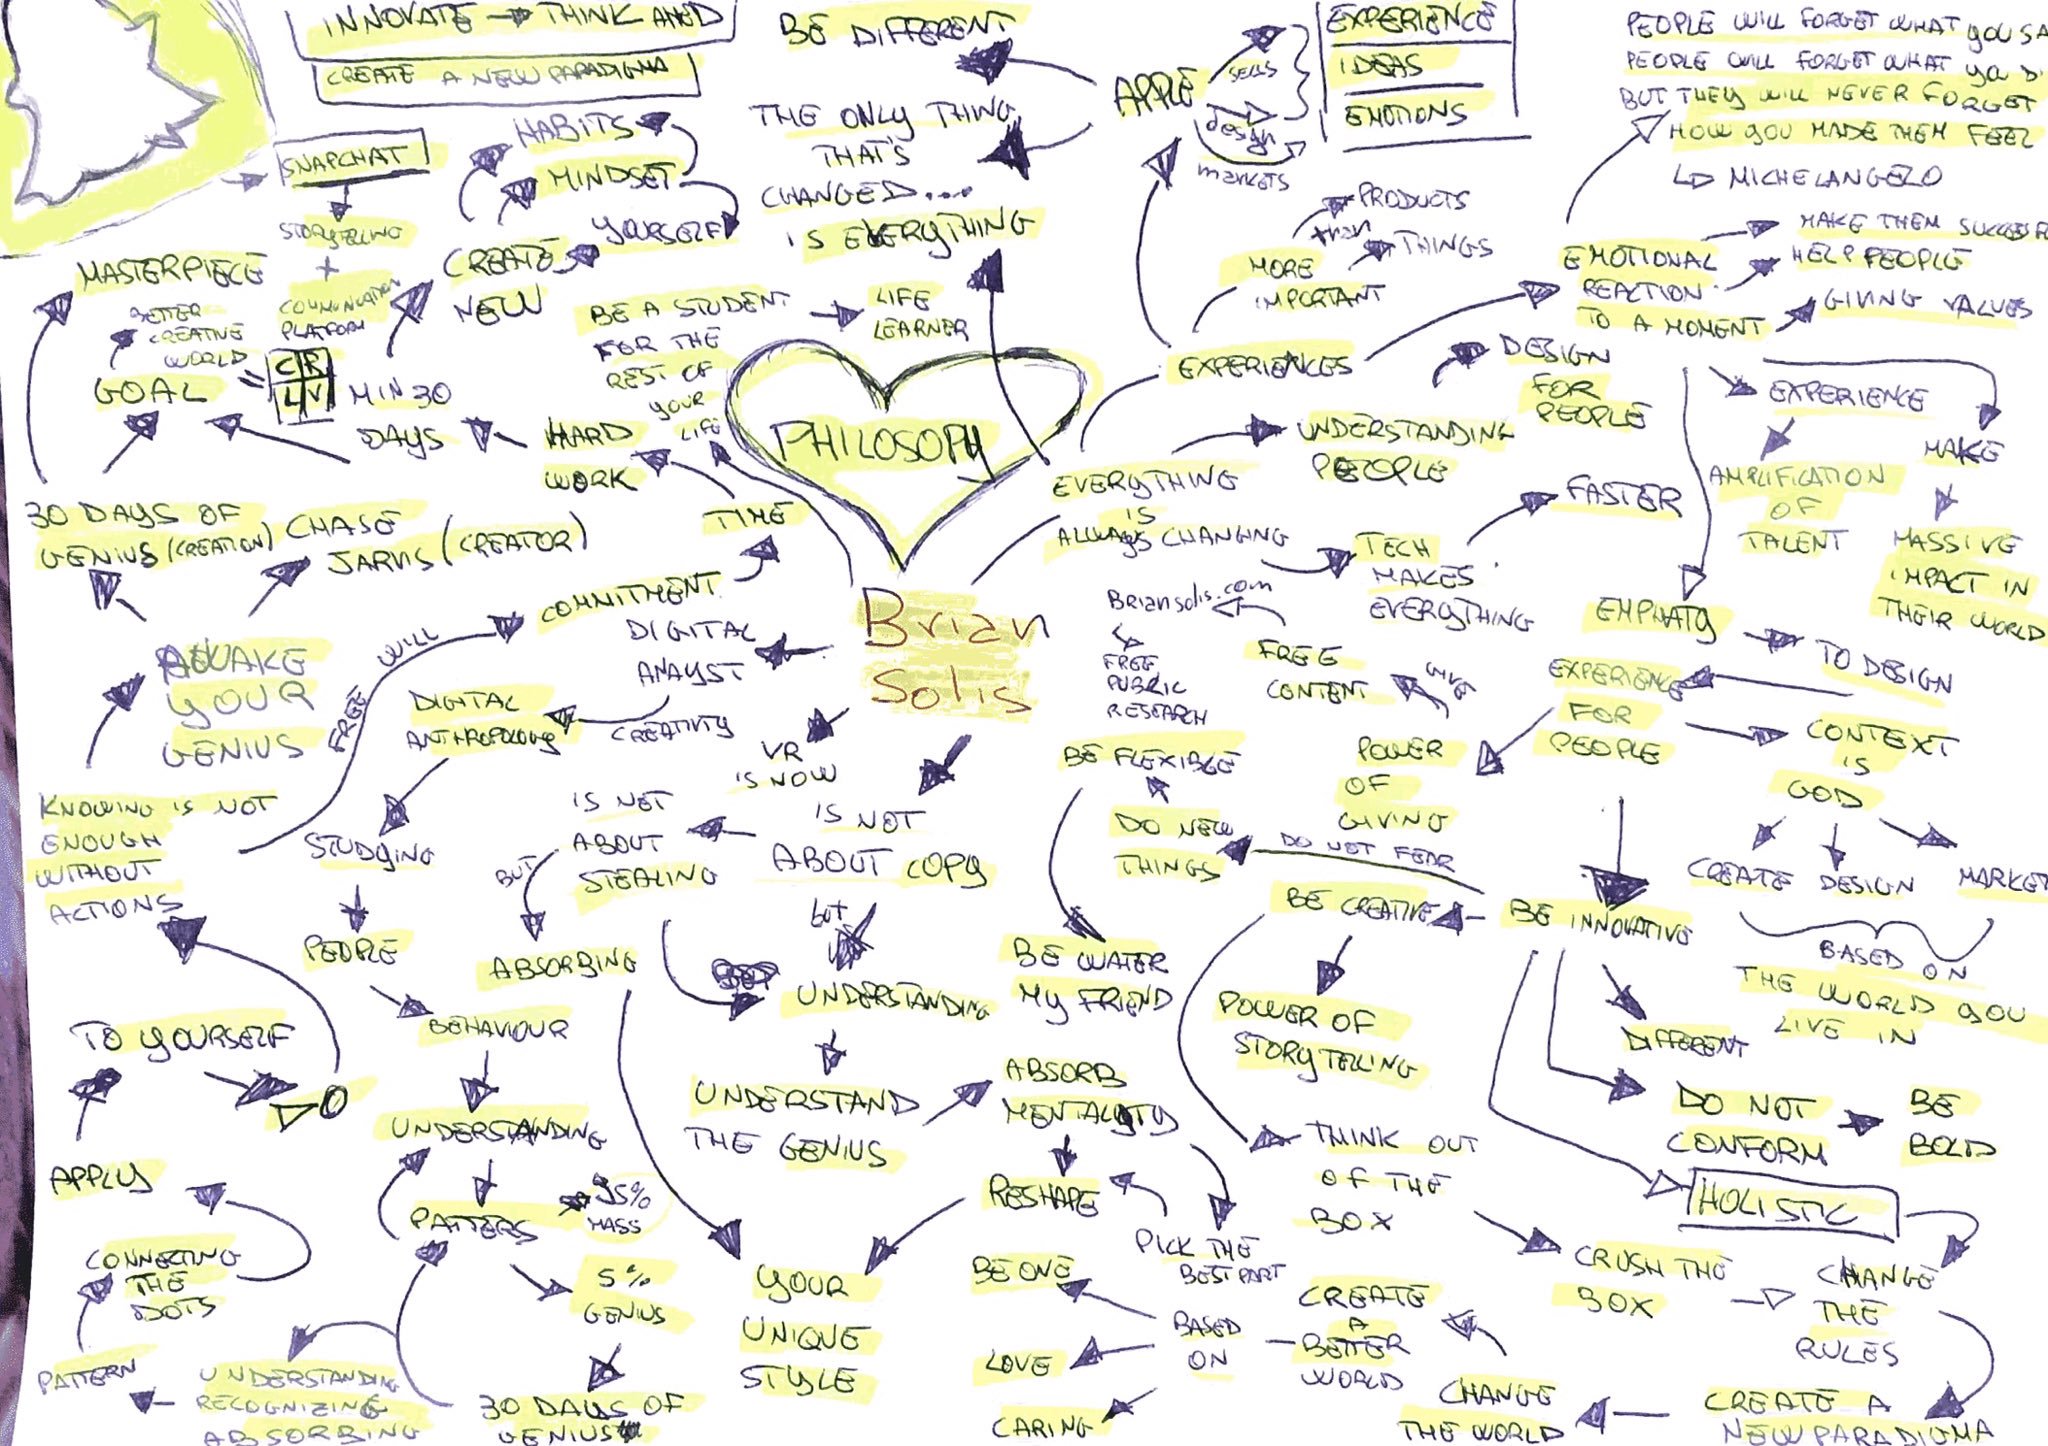 INNOVATE → THINK AHED
CREATE A NEW PARADIGMA
SNAPCHAT
STORYTELLING
+
COMMUNICATION
PLATFORM
HABITS
MINDSET
YOURSELF
CREATE
NEW
MASTERPIECE
BETTER
CREATIVE
WORLD
GOAL
=
C R
L V
MIN 30
DAYS
HARD
WORK
TIME
BE A STUDENT
FOR THE
REST OF
YOUR
LIFE
LIFE
LEARNER
BE DIFFERENT
THE ONLY THING
THAT'S
CHANGED....
IS EVERYTHING
APPLE
SELLS
design
markets
EXPERIENCE
IDEAS
EMOTIONS
PEOPLE WILL FORGET WHAT YOU SA
PEOPLE WILL FORGET WHAT YOU D
BUT THEY WILL NEVER FORGET
HOW YOU MADE THEM FEEL
MICHELANGELO
PRODUCTS
than
THINGS
MORE
IMPORTANT
EXPERIENCES
EMOTIONAL
REACTION
TO A MOMENT
MAKE THEM SUCCESSF
HELP PEOPLE
GIVING VALUES
DESIGN
FOR
PEOPLE
UNDERSTANDING
PEOPLE
EXPERIENCE
AMPLIFICATION
OF
TALENT
MAKE
MASSIVE
IMPACT IN
THEIR WORLD
PHILOSOPHY
EVERYTHING
IS
ALWAYS CHANGING
TECH
MAKES
EVERYTHING
FASTER
30 DAYS OF
GENIUS (CREATION)
CHASE
JARVIS (CREATOR)
AWAKE
YOUR
GENIUS
FREE WILL
COMMITMENT
Brian
Solis
DIGITAL
ANALYST
CREATIVITY
DIGITAL
ANTHROPOLOGY
VR
IS NOW
Briansolis.com
FREE
PUBRIC
RESEARCH
FREE
CONTENT
GIVE
POWER
OF
GIVING
EMPHATY
TO DESIGN
EXPERIENCE
FOR
PEOPLE
CONTEXT
IS
GOD
CREATE DESIGN MARKET
BASED ON
THE WORLD YOU
LIVE IN
KNOWING IS NOT
ENOUGH
WITHOUT
ACTIONS
STUDYING
PEOPLE
BEHAVIOUR
UNDERSTANDING
PATTERS
95%
MASS
5%
GENIUS
30 DAYS OF
GENIUS
IS NOT
ABOUT
STEALING
BUT
ABSORBING
IS NOT
ABOUT COPY
but
UNDERSTANDING
UNDERSTAND
THE GENIUS
ABSORB
MENTALYTY
RESHAPE
PICK THE
BEST PART
YOUR
UNIQUE
STYLE
BE FLEXIBLE
DO NEW
THINGS
DO NOT FEAR
BE WATER
MY FRIEND
BE CREATIVE
BE INNOVATIVE
POWER OF
STORYTELLING
DIFFERENT
DO NOT
CONFORM
BE
BOLD
HOLISTIC
THINK OUT
OF THE
BOX
CRUSH THE
BOX
CHANGE
THE
RULES
CREATE A
NEW PARADIGMA
CHANGE
THE WORLD
CREATE
A
BETTER
WORLD
BASED
ON
BE ONE
LOVE
CARING
TO YOURSELF
DO
APPLY
CONNECTING
THE
DOTS
PATTERN
UNDERSTANDING
RECOGNIZING
ABSORBING